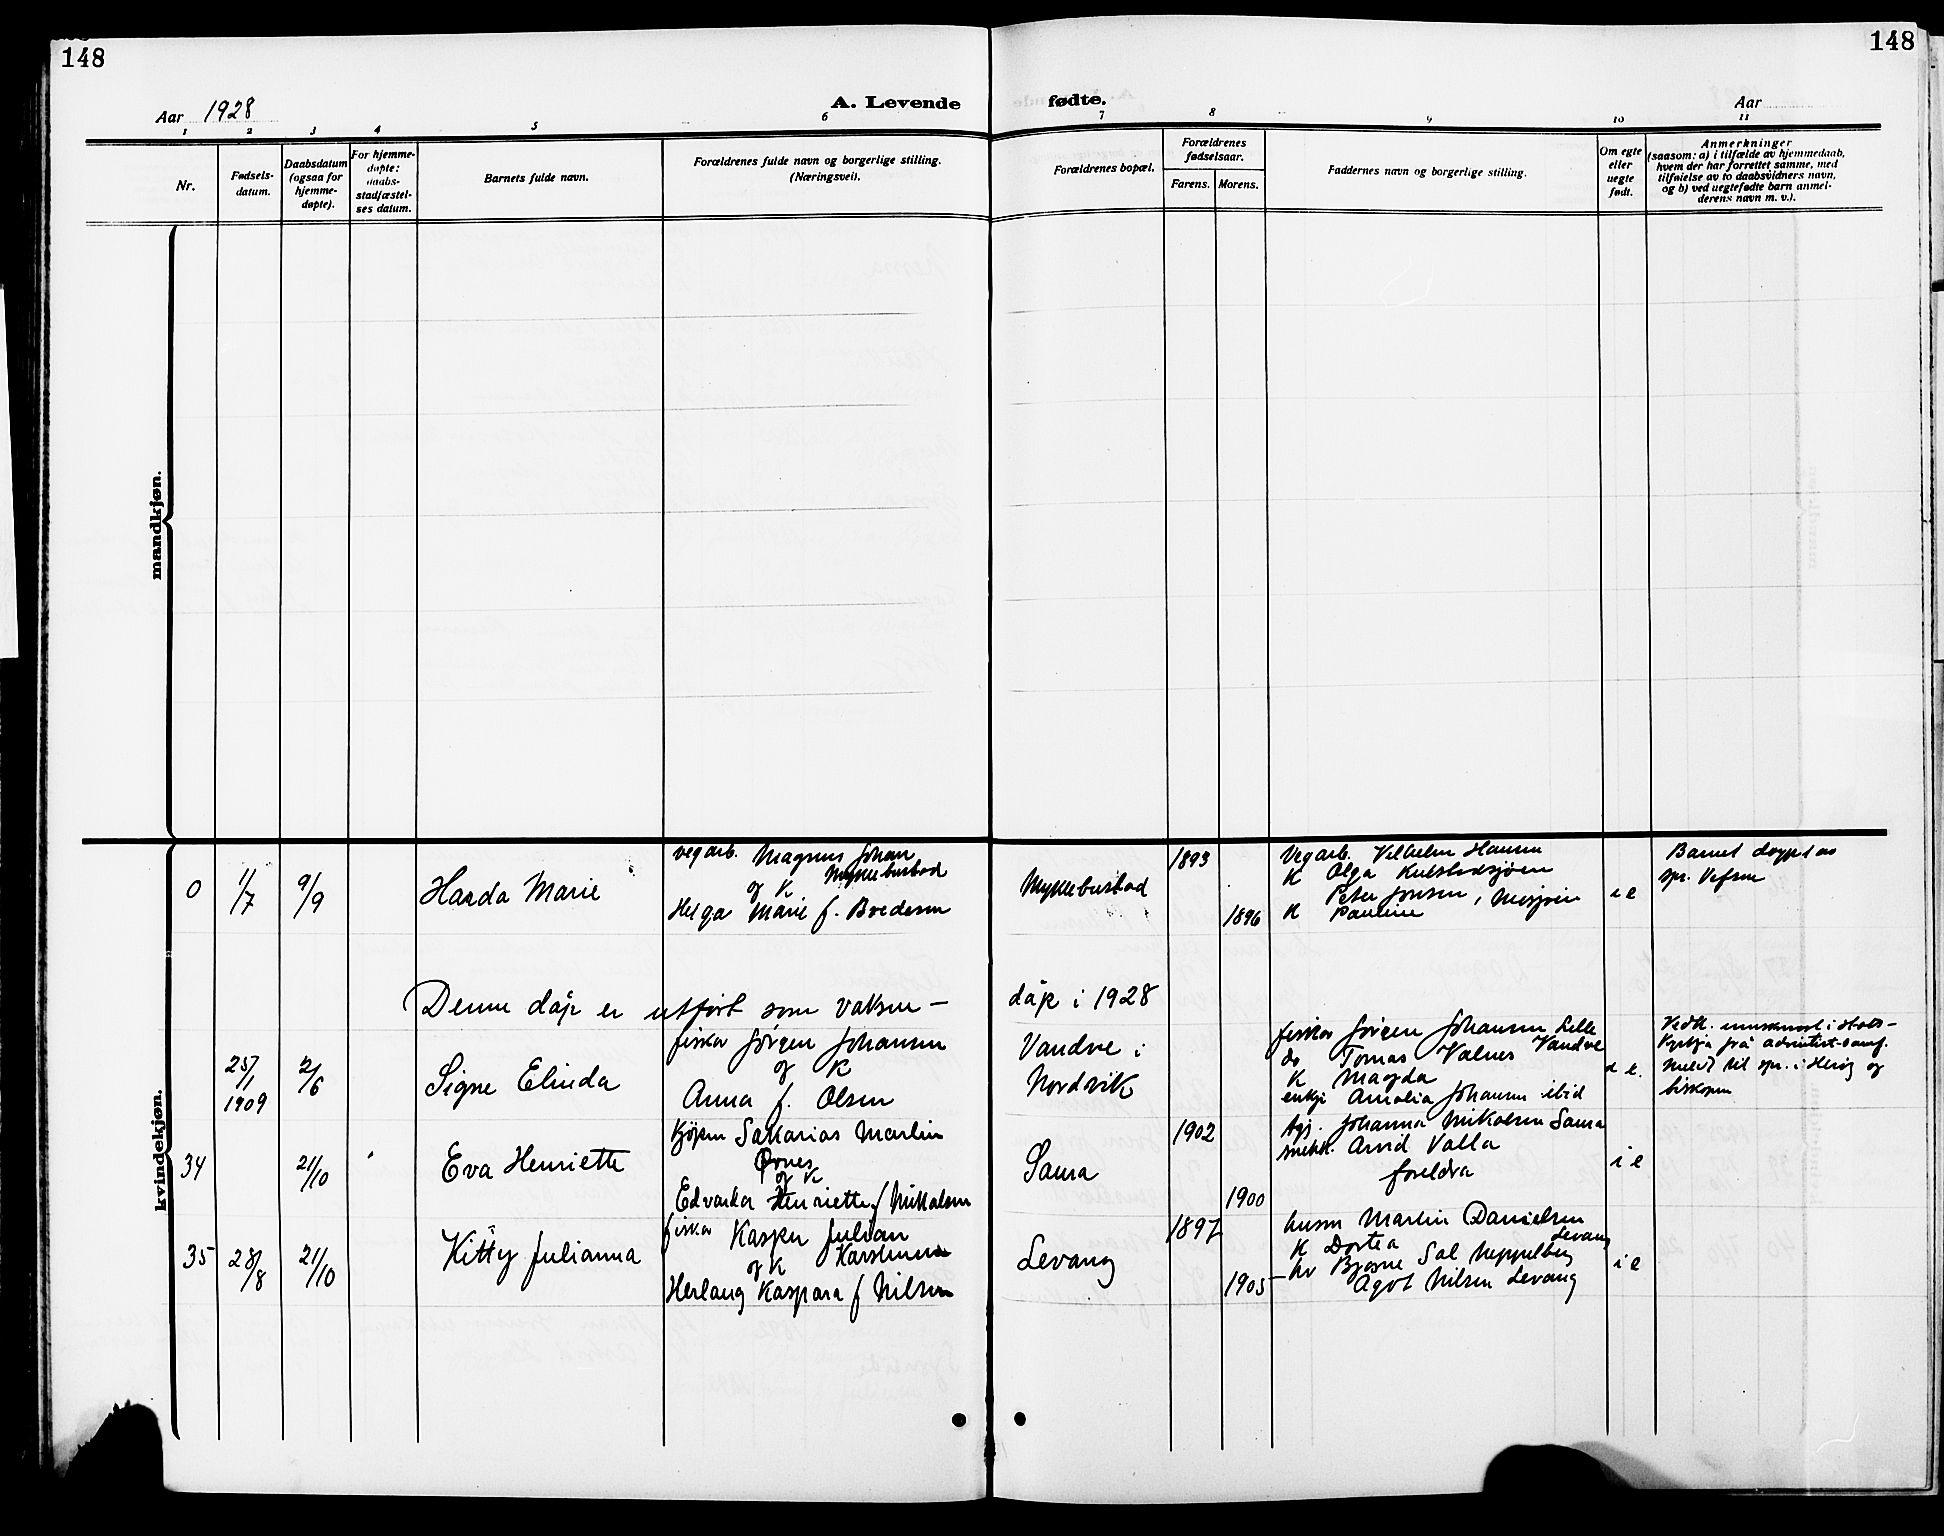 148
148
Aar 1928
A. Levende
fødte.
Aar
1
2
3
4
5
6
7
8
9
10
11
Nr.
Fødsels-
datum.
Daabsdatum
(ogsaa for
hjemme-
døpte).
For hjemme-
døpte:
daabs-
stadfæstel-
ses datum.
Barnets fulde navn.
Forældrenes fulde navn og borgerlige stilling.
(Næringsvei).
Forældrenes bopæl.
Forældrenes
fødselsaar.
Farens.
Morens.
Faddernes navn og borgerlige stilling.
Om egte
eller
uegte
født.
Anmerkninger
(saasom: a) i tilfælde av hjemmedaab,
hvem der har forrettet samme, med
tilføielse av to daabsvidners navn,
og b) ved uegtefødte barn anmel-
derens navn m. v.).
mandkjøn.
kvindekjøn.
0
11/7
9/9
Harda Marie
vegarb. Magnus Johan
Myklebustad
og K
Helga Marie f. Bredesen
Myklebustad
1893
1896
Vegarb. Vilhelm Hansen
K Olga Kulstadsjøen
Peter Jonsen, Mosjøen
K Pauline
i e
Barnet døypt av
spr. Vefsn
Denne dåp er utført som vaksen-
dåp i 1928
25/1
1909
2/6
Signe Elinda
fiskar Jørgen Johansen
og K
Anna f. Olsen
Vandve i
Nordvik
fiskar Jørgen Johansen Lille
do Tomas Valnes Vandve
K Magda
enkje Amalia Johansen ibid
e.
Vedk. innskrevet i stats-
kyrkja frå adventist-samf.
meldt til spr. i Herøy og
biskopen
34
21/10
Eva Henriette
Kjøpm Sakarias Martin
Ørnes
og K
Edvarda Henriette f Mikalsen
Saura
1902
1900
Johanna Mikalsen Saura
snekk. Arvid Valla
foreldra
i e
35
28/8
21/10
Kitty Julianna
fiskar Kasper Julian
Karstensen
og K
Herlaug Kaspara f Nilsen
Levang
1897
1905
husm Martin Danielsen
Levang
K Dortea
Bjarne Sal. Meppelberg
Agot Nilsen Levang
i e